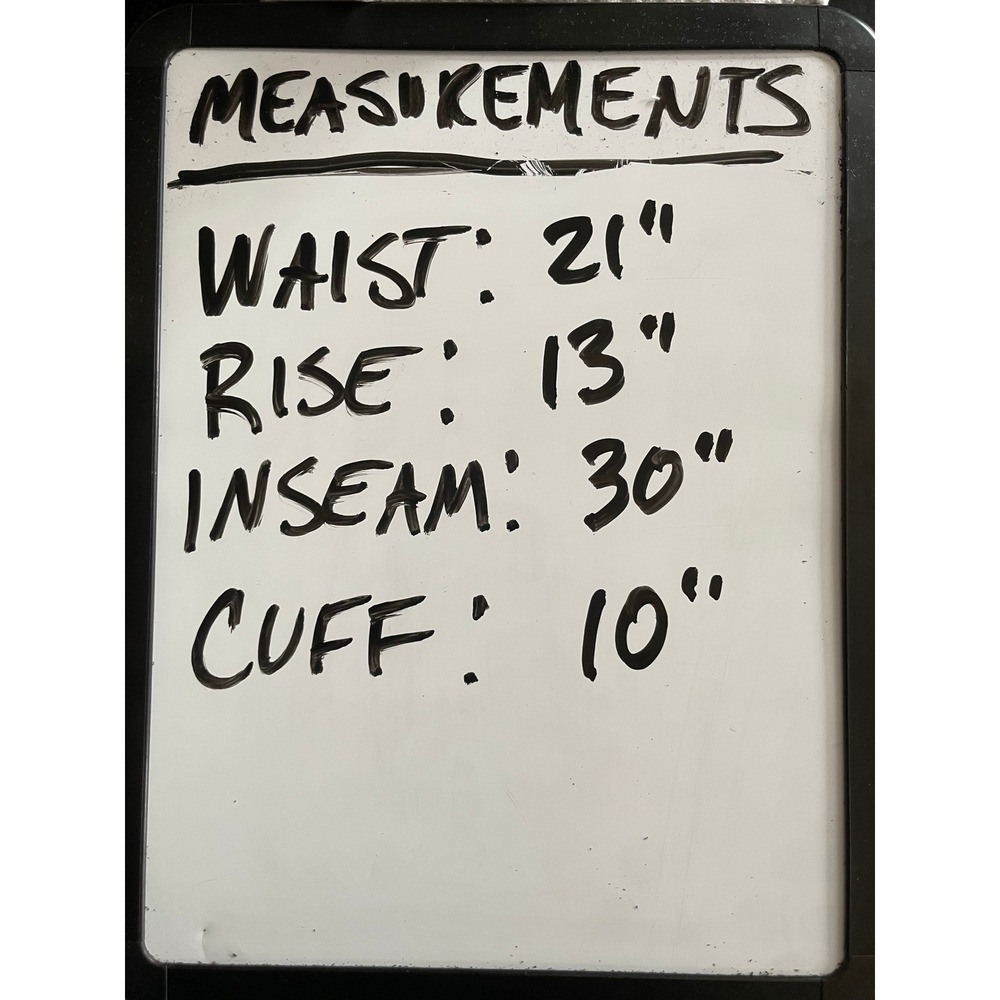 MEASUREMENTS
WAIST: 21"
RISE: 13"
INSEAM: 30"
CUFF: 10"